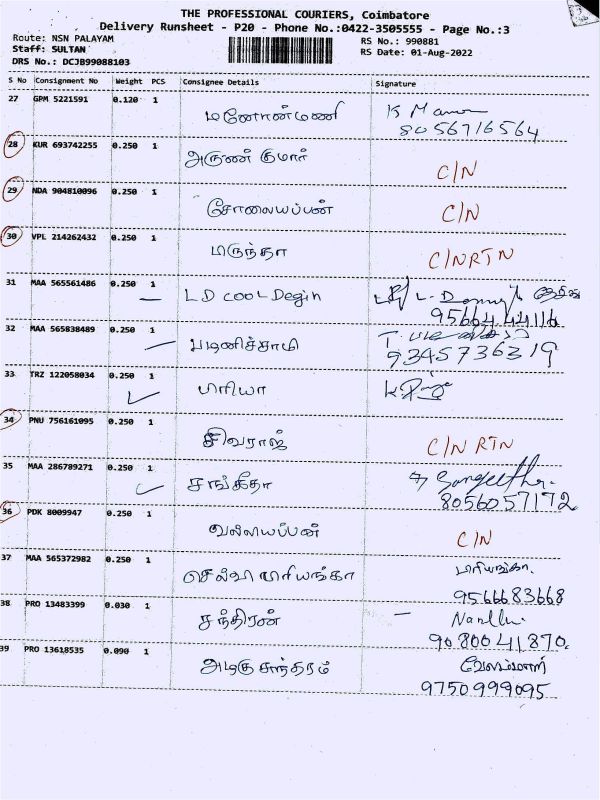 THE PROFESSIONAL COURIERS, Coimbatore
Delivery Runsheet - P20 - Phone No.:0422-3505555 - Page No.:3
Route: NSN PALAYAM
RS No.: 990881
Staff: SULTAN
RS Date: 01-Aug-2022
DRS No.: DCJB99088103
S No Consignment No Weight PCS Consignee Details Signature
27 GPM 5221591 0.120 1 மனோன்மணி K
8056716564
28 KUR 693742255 0.250 1 அருண் குமார் C/N
29 NDA 904810096 0.250 1 சோலையப்பன் C/N
30 VPL 214262432 0.250 1 மருந்தா C/N RTN
31 MAA 565561486 0.250 1 LD COOL Degin
32 MAA 565838489 0.250 1 பழனிச்சாமி T.
9345736319
33 TRZ 122058034 0.250 1 பாரியா
34 PNU 756161095 0.250 1 சிவராஜ் C/N RTN
35 MAA 286789271 0.250 1 சங்கீதா Sangeetha.
8056057172
36 PDK 8009947 0.250 1 வல்லியப்பன் C/N
37 MAA 565372982 0.250 1 செல்வ பிரியங்கா பிரியங்கா.
9566683668
38 PRO 13483399 0.030 1 சந்திரன்
9080041870.
39 PRO 13618535 0.090 1 அழகு சுந்தரம்
9750999095